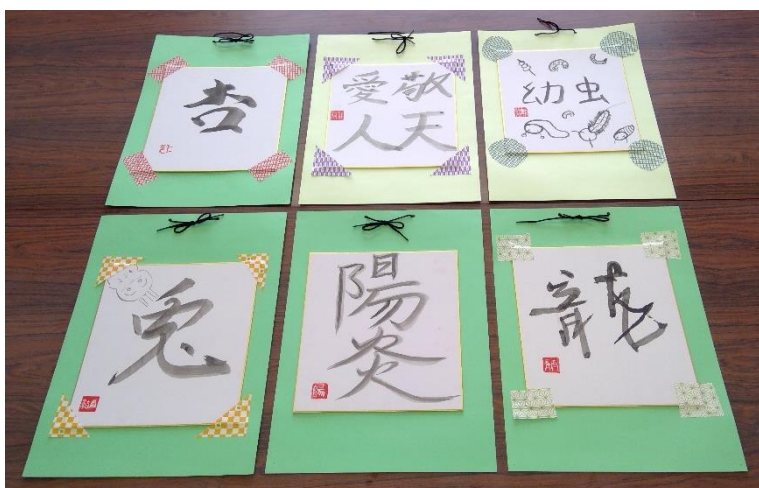 杏
敬天
愛人
幼虫
兎
陽炎
龍